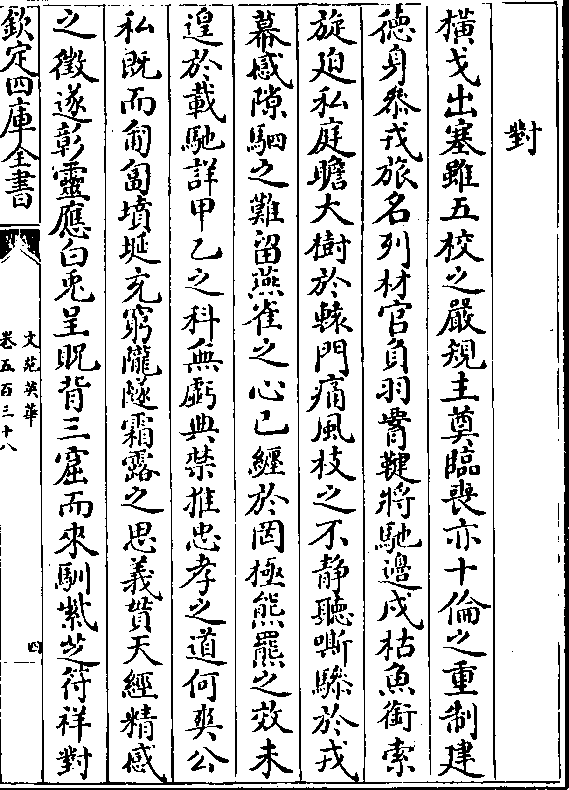 對
橫戈出塞雖五校之嚴䂓主奠臨喪亦十倫之重制建
徳身叅戎旅名列材官負羽胷鞬將馳邊戍枯魚銜索
旋廹私庭瞻大樹於轅門痛風枝之不静聽嘶驂於戎
幕感隙駟之難留燕雀之心已纒於罔極熊羆之效未
遑於載馳詳甲乙之科無虧典禁推忠孝之道何爽公
私既而匍匐墳埏充窮隴隧霜露之思義貫天經精感
之徵遂彰靈應白兎呈貺背三窟而來馴紫芝符祥對
欽定四庫全書
文苑英華
卷五百三十八
四